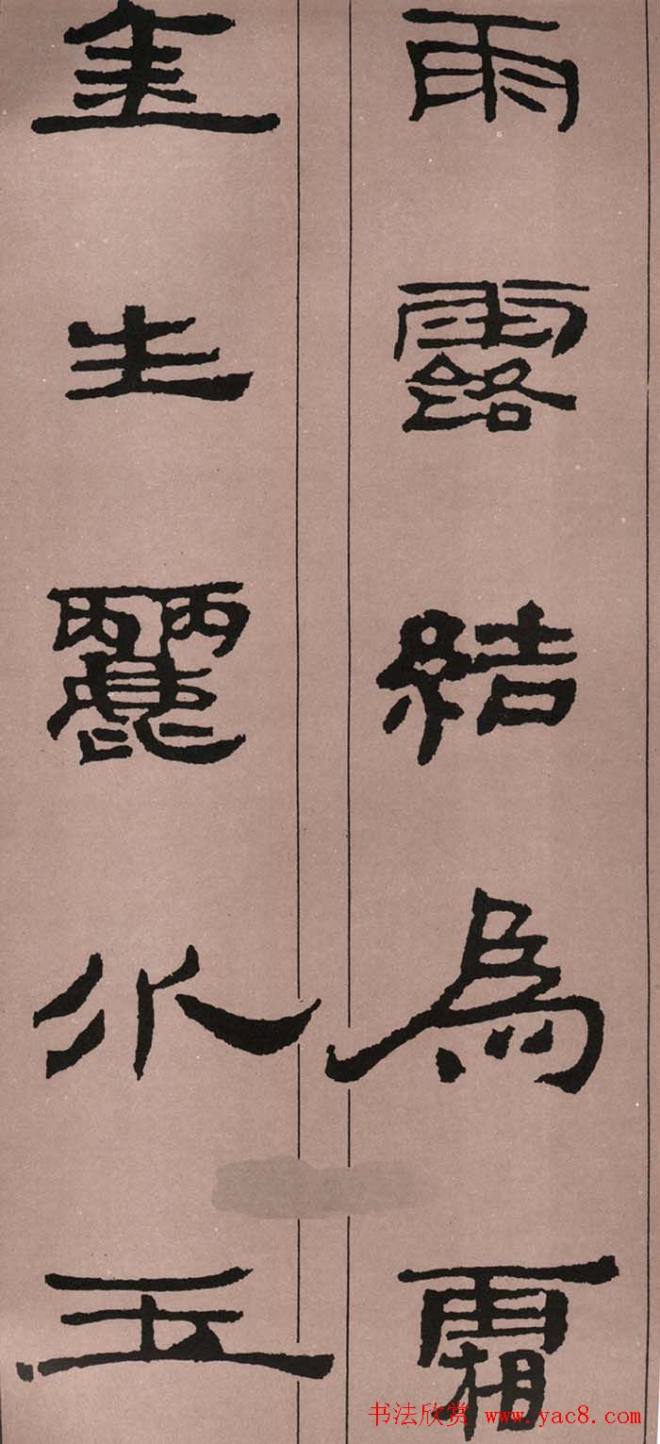 雨露結為霜
金生麗水玉
书法欣赏 www.yac8.com